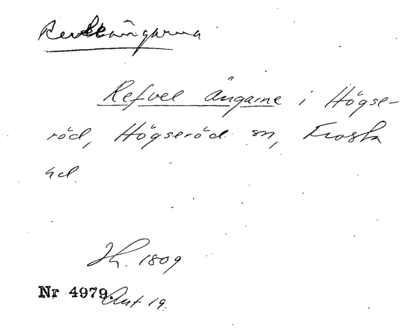 Revelängarna
Refvel Ängarne i Högse-
röd, Högseröds sn, Frosta
hd
Jh. 1809
Nr 4979. Akt 19.